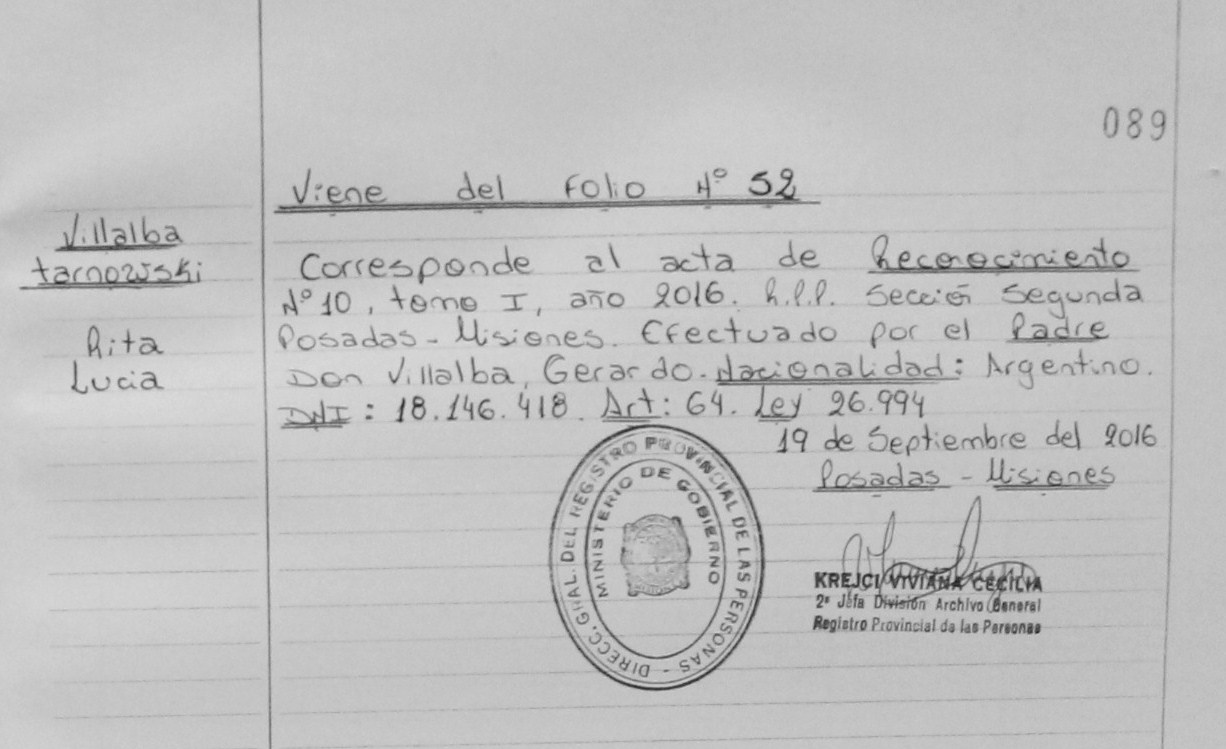 089
Viene del Folio Nº 52
Villalba
tarnowski
Rita
Lucia
Corresponde al acta de Reconocimiento
Nº 10, tomo I, año 2016. R.P.P. Sección Segunda
Posadas - Misiones. Efectuado por el Padre
Don Villalba, Gerardo. Nacionalidad: Argentino.
DNI: 18.146.418. Art: 64. Ley 26.994
19 de Septiembre del 2016
Posadas - Misiones
DIRECC. GRAL. DEL REGISTRO PROVINCIAL DE LAS PERSONAS -
MINISTERIO DE GOBIERNO
KREJCI VIVIANA CECILIA
2ª Jefa División Archivo General
Registro Provincial de las Personas